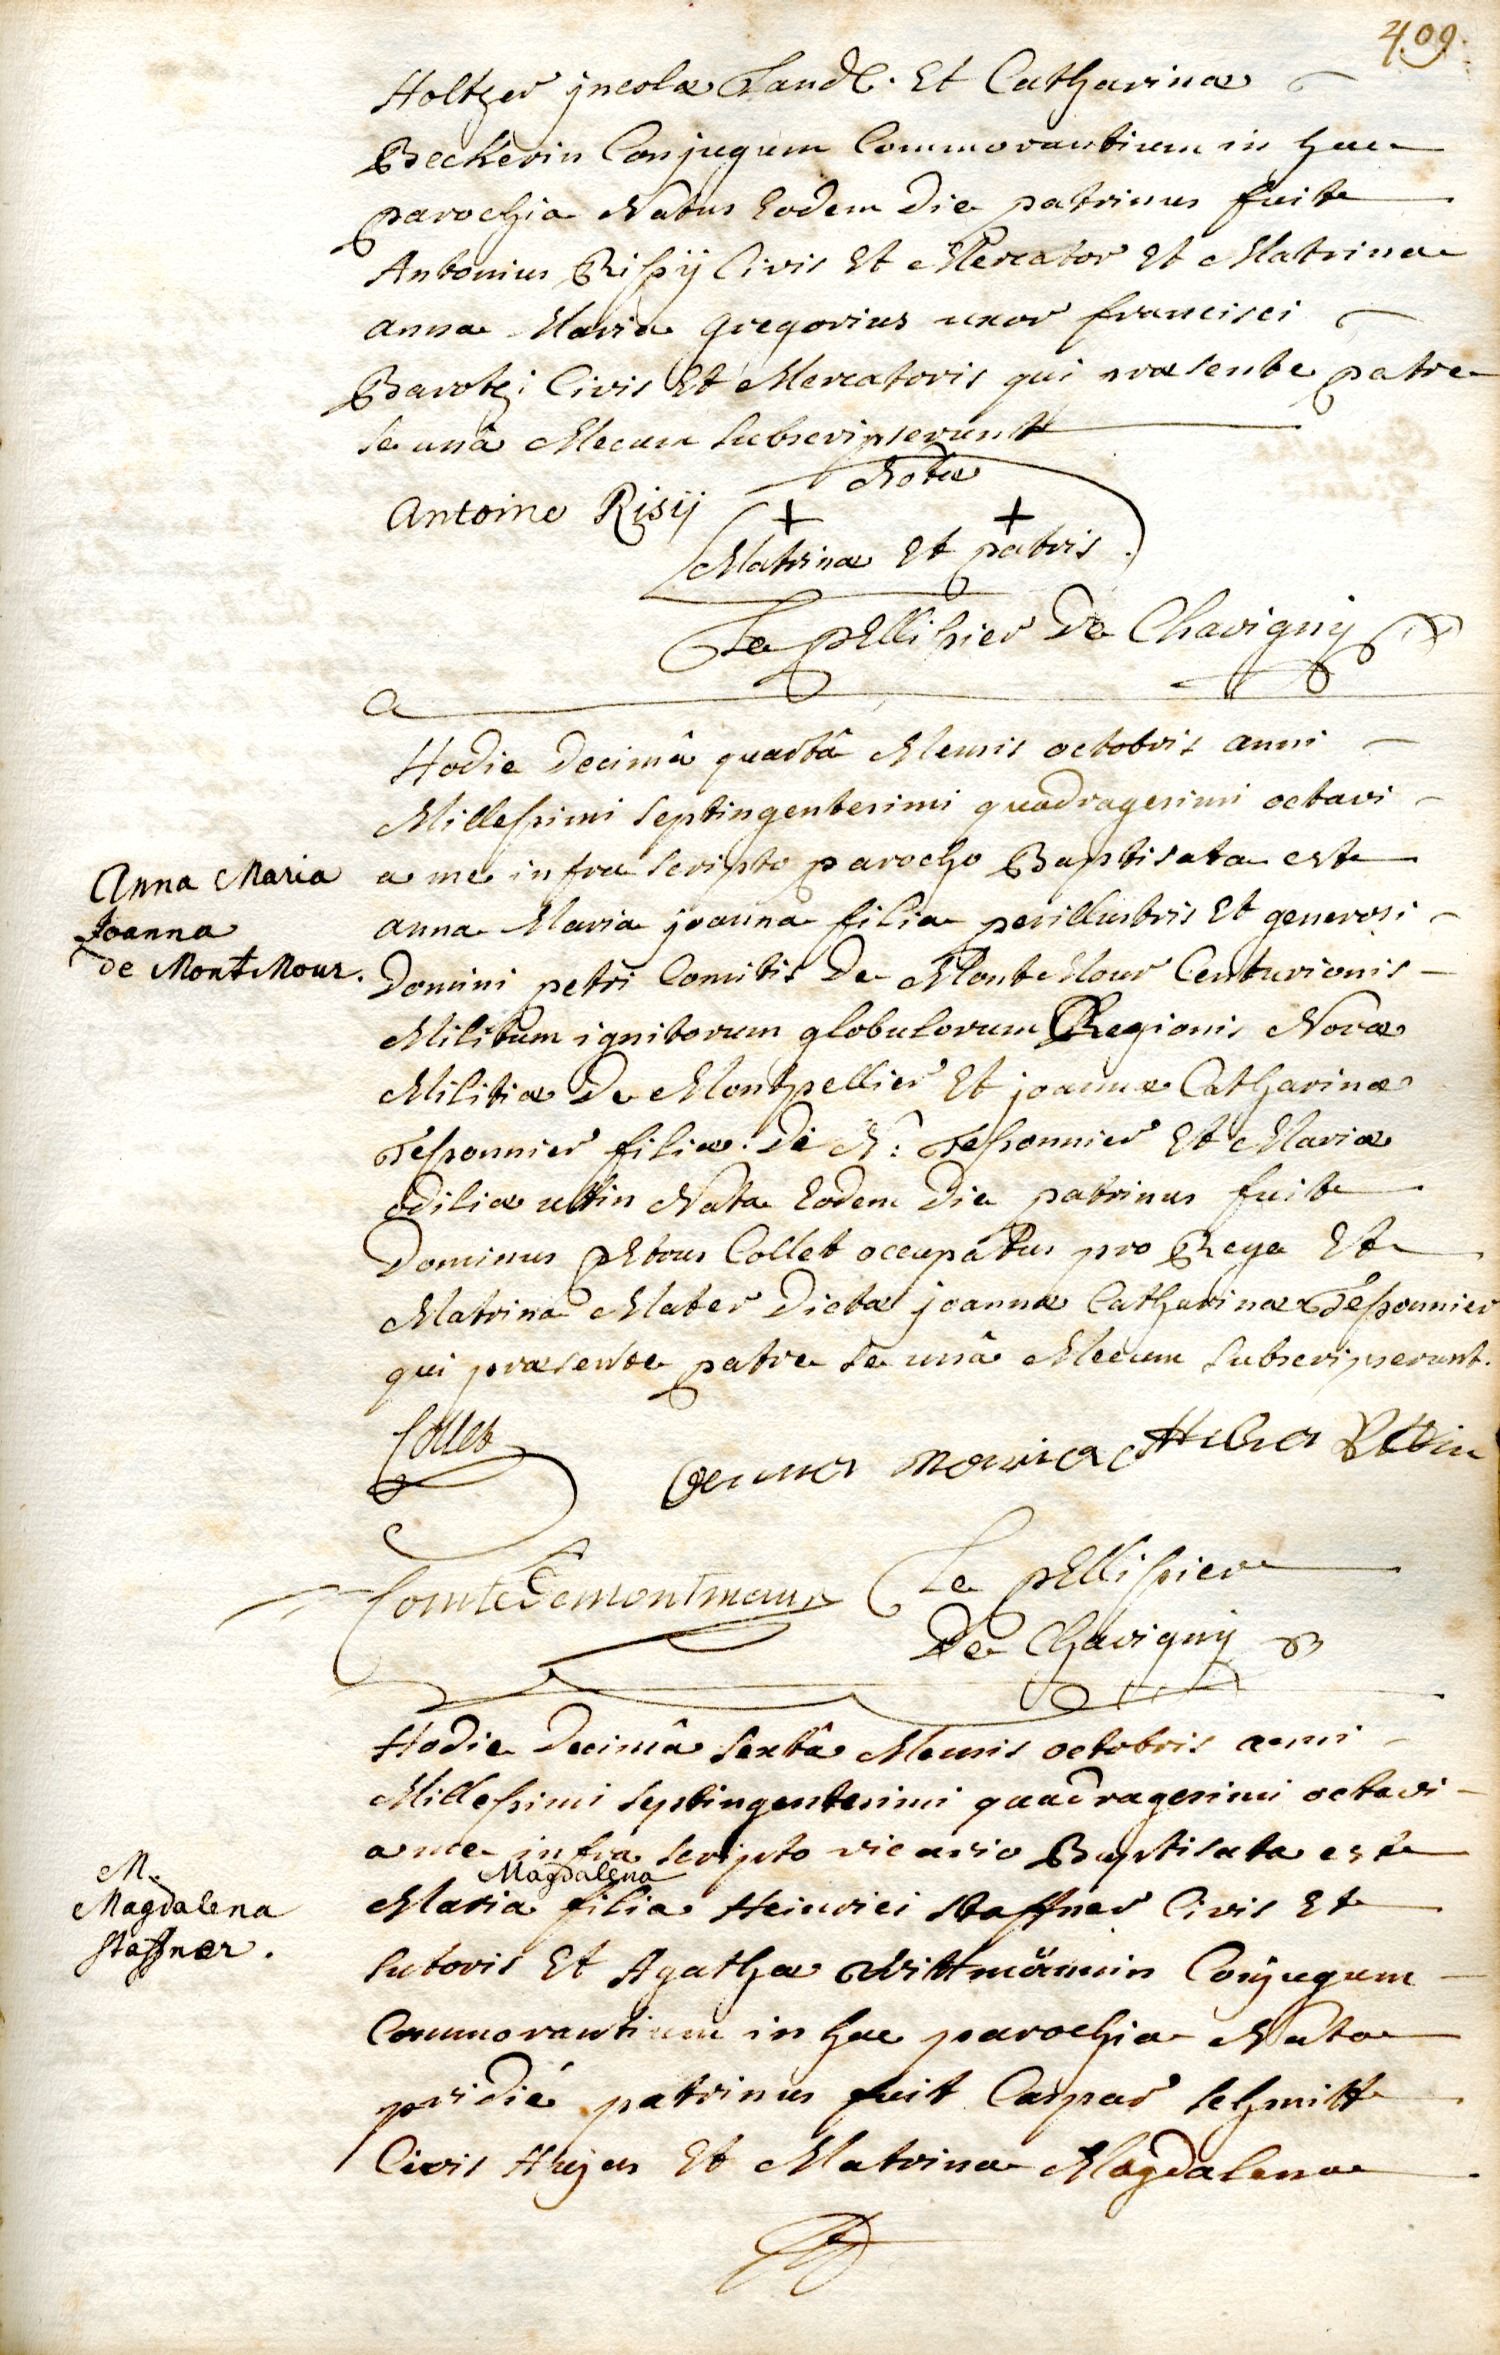 409.
Holtzer jncolæ Land. Et Catharinæ
Beckerin Conjugum Commorantium in hac
parochia Natus Eodem die patrinus fuit
Antonius Risÿ Civis Et Mercator Et Matrina
anna Maria gregorius uxor francisci
Barotzi Civis Et Mercatoris qui præsente patre
se unâ Mecum subscripserunt
Notæ
Antoine Risÿ
+ +
Matrinæ Et patris.
Le pEllissier De Chavigny
Hodie Decimâ quartâ Mensis octobris anni
Millessimi septingentesimi quadragesimi octavi
a me infra scripto parocho Baptisata est
Anna Maria
Joanna
de Mont Mour.
anna Maria joanna filia perillustris Et generosi
Domini petri Comitis De Mont Mour Centurionis
Militum ignitorum globulorum Regionis Novæ
Militiæ De Montpellier Et joannæ Catharinæ
Tessonnier filiæ De N: Tessonnier Et Mariæ
odiliæ uttin Nata Eodem die patrinus fuit
Dominus pEtrus Collet occupatus pro Rege Et
Matrina Mater Dictæ joannæ Catharinæ Tessonnier
qui præsente patre se unâ Mecum subscripserunt.
Collet
maria Uttin
Comte de montmaur
Le pEllissier
De Chavigny
Hodie Decimâ sextâ Mensis octobris anni
Millessimi septingentesimi quadragesimi octavi
a me infra scripto vicario Baptisata est
M.
Magdalena
Staffner.
Magdalena
Maria filia Heinrici Staffner Civis Et
sutoris Et Agathæ Wittmännin Conjugum
Commorantium in hac parochia Nata
pridie patrinus fuit Caspar schmitt
Civis Hujus Et Matrina Magdalena